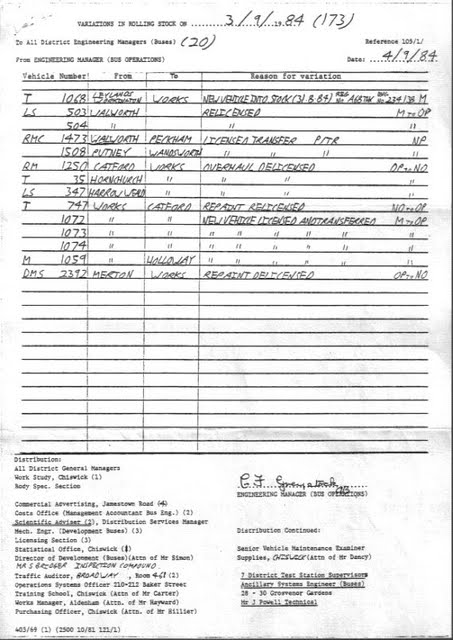 VARIATIONS IN ROLLING STOCK ON 3/9/84 (173)
To All District Engineering Managers (Buses) (20) Reference 105/1/
From ENGINEERING MANAGER (BUS OPERATIONS) Date: 4/9/84
Vehicle Number From To Reason for variation
T 1068 LEYLANDS WORKS NEW VEHICLE INTO STOCK (31.8.84) REG No A68 THX ENG. No 234138 M
LS 503 WALWORTH RELICENSED M TO OP
504 " " "
RMC 1473 WALWORTH PECKHAM LICENSED TRANSFER P/TR NP
1508 PUTNEY WANDSWORTH " " " "
RM 1250 CATFORD WORKS OVERHAUL DELICENSED OP TO NO
T 35 HORNCHURCH " " " "
LS 347 HARROW WEALD " " " "
T 747 WORKS CATFORD REPAINT RELICENSED NO TO OP
1072 " " NEW VEHICLE LICENSED AND TRANSFERRED M TO OP
1073 " " " " " " " "
1074 " " " " " " " "
M 1059 " HOLLOWAY " " " " " "
DMS 2392 MERTON WORKS REPAINT DELICENSED OP TO NO
Distribution:
All District General Managers
Work Study, Chiswick (1)
Body Spec. Section
ENGINEERING MANAGER (BUS OPERATIONS)
Commercial Advertising, Jamestown Road
Costs Office (Management Accountant Bus Eng.) (2)
Scientific Adviser (2), Distribution Services Manager
Mech. Engr. (Development Buses) (3)
Licensing Section (3)
Statistical Office, Chiswick
Director of Development (Buses)(Attn of Mr Simon)
INSPECTION COMPOUND
Traffic Auditor, BROADWAY, Room 461 (2)
Operations Systems Officer 210-212 Baker Street
Training School, Chiswick (Attn of Mr Carter)
Works Manager, Aldenham (Attn. of Mr Hayward)
Purchasing Officer, Chiswick (Attn of Mr Hillier)
Distribution Continued:
Senior Vehicle Maintenance Examiner
Supplies, CHISWICK (Attn of Mr Dancy)
7 District Test Station Supervisors
Ancillary Systems Engineer (Buses)
28 - 30 Grosvenor Gardens
Mr J Powell Technical
403/69 (1) (2500 10/81 121/1)